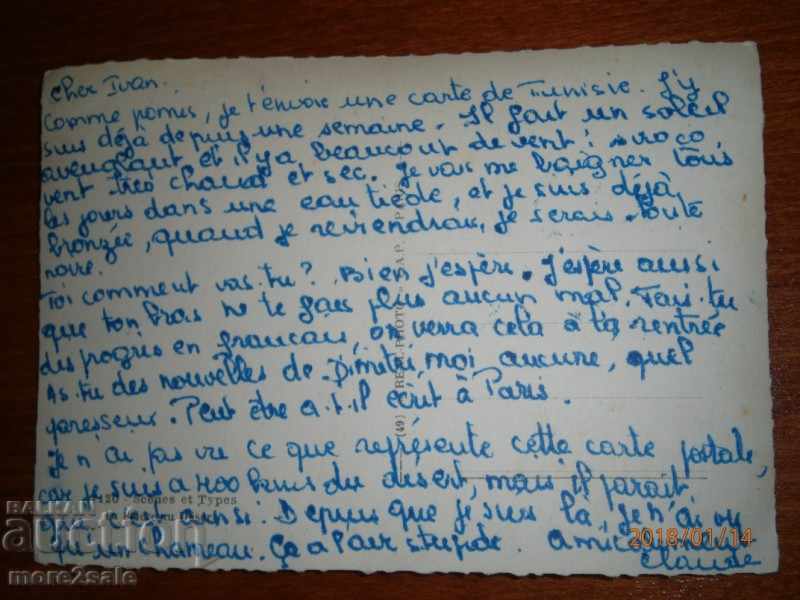 Cher Ivan.
Comme promis, je t'envoie une carte de Tunisie. J'y
suis déjà depuis une semaine. Il fait un soleil
aveuglant et il y a beaucoup de vent : siroco,
vent très chaud et sec. Je vais me baigner tous
les jours dans une eau tiède, et je suis déjà
bronzée, quand je reviendrai, je serais toute
noire.
Toi comment vas-tu? Bien j'espère. J'espère aussi
que ton bras ne te fais plus aucun mal. Fais-tu
des progrès en français, on verra cela à la rentrée
As-tu des nouvelles de Dimitri, moi aucune, quel
paresseux. Peut être a-t-il écrit à Paris.
Je n'ai pas vu ce que représente cette carte postale,
car je suis à 400 kms du désert, mais il parait
que c'est ainsi. Depuis que je suis là je n'ai vu
qu'un chameau. Ça a l'air stupide.
Claude
(49) REAL-PHOTO
A.P.
1120 - Scènes et Types
BALKAN
auction
more2sale
2018/01/14